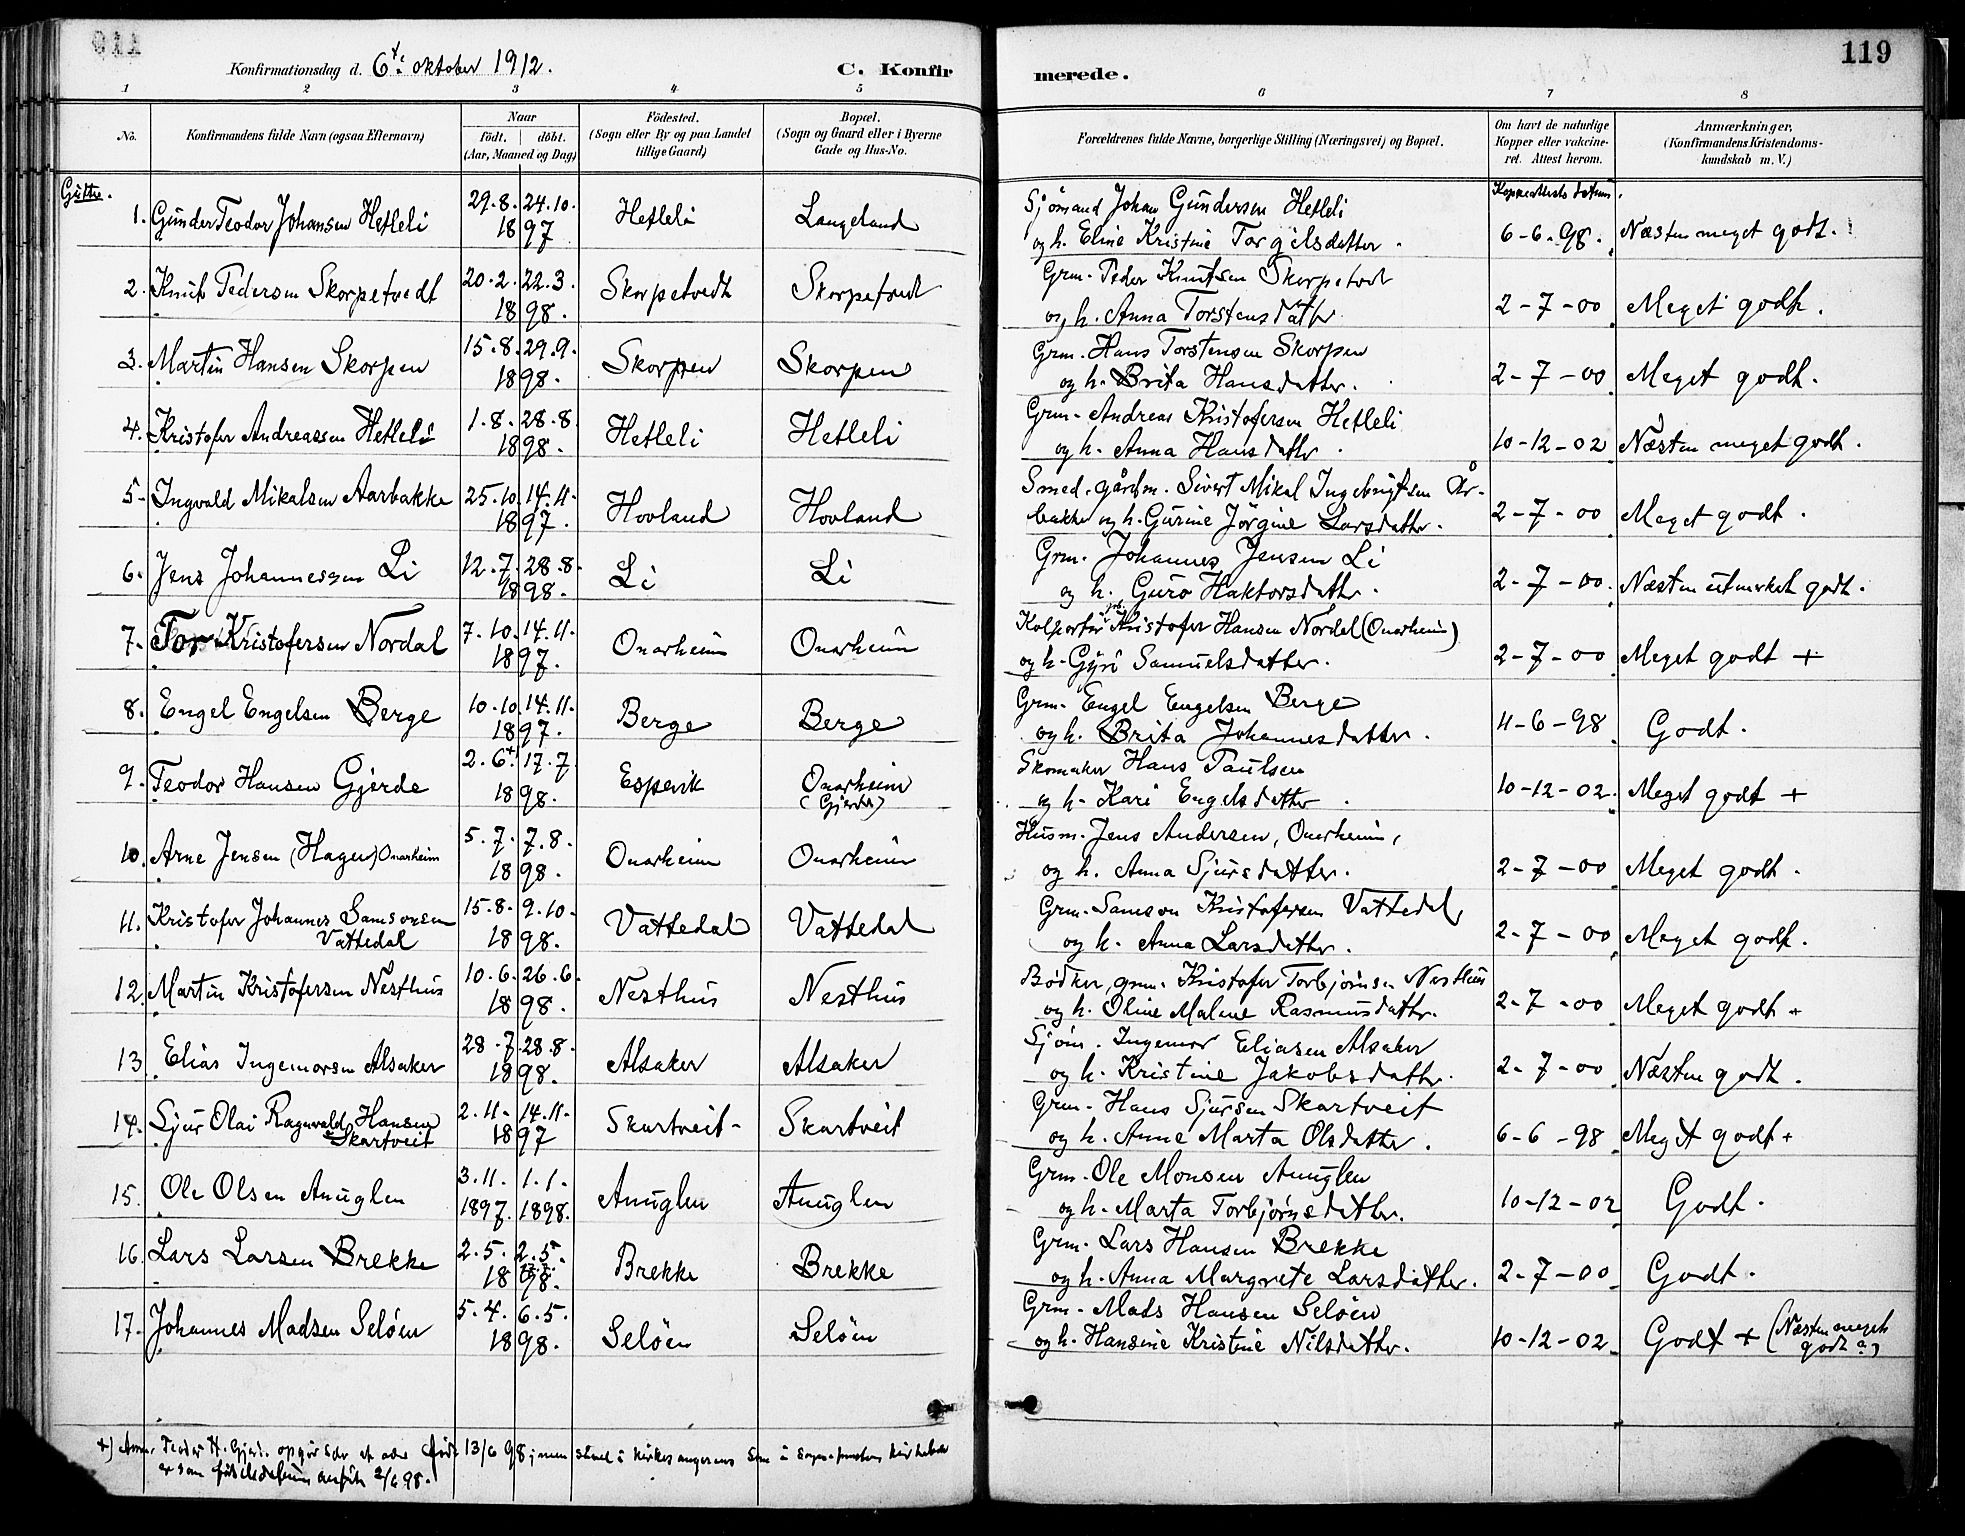 119
Konfirmationsdag d. 6te oktober 1912.
C. Konfirmerede.
1 2 3 4 5 6 7 8
No.
Konfirmandens fulde Navn (ogsaa Efternavn)
Naar
født. døbt.
(Aar, Maaned og Dag)
Fødested.
(Sogn eller By og paa Landet
tillige Gaard)
Bopæl.
(Sogn og Gaard eller i Byerne
Gade og Hus-No.
Forældrenes fulde Navne, borgerlige Stilling (Næringsvei) og Bopæl.
Om havt de naturlige
Kopper eller vakcine-
ret. Attest herom.
Anmærkninger,
(Konfirmandens Kristendoms-
kundskab m. V.)
Gutter.
Koppeattests datum.
1. Gunder Teodor Johansen Hetleli 29.8. 24.10. 1897 Hetleli Langeland Sjømand Johan Gundersen Hetleli
og h. Eline Kristine Torgilsdatter. 6-6-98. Næsten meget godt.
2. Knut Pedersen Skorpetvedt 20.2. 22.3. 1898. Skorpetvedt Skorpetvedt Grm. Peder Knutsen Skorpetvedt
og h. Anna Torstensdatter 2-7-00 Meget godt.
3. Martin Hansen Skorpen 15.8. 29.9. 1898. Skorpen Skorpen Grm. Hans Torstensen Skorpen
og h. Brita Hansdatter. 2-7-00 Meget godt.
4. Kristofer Andreassen Hetleli 1.8. 28.8. 1898. Hetleli Hetleli Grm. Andreas Kristofersen Hetleli
og h. Anna Hansdatter. 10-12-02 Næsten meget godt.
5. Ingvald Mikalsen Aarbakke 25.10. 14.11. 1897. Hovland Hovland Smed, gårdm. Sivert Mikal Ingebrigtsen År-
bakke og h. Gurine Jørgine Larsdatter. 2-7-00 Meget godt.
6. Jens Johannessen Li 12.7. 28.8. 1898. Li Li Grm. Johannes Jensen Li
og h. Guro Haktorsdatter. 2-7-00. Næsten utmerket godt.
7. Tor Kristofersen Nordal 7.10. 14.11. 1897. Onarheim Onarheim Kolportør Kristofer Hansen Nordal (Onarheim)
og h. Gyri Samuelsdatter. 2-7-00 Meget godt +
8. Engel Engelsen Berge 10.10. 14.11. 1897. Berge Berge Grm. Engel Engelsen Berge
og h. Brita Johannesdatter. 11-6-98 Godt.
9. Teodor Hansen Gjerde 2.6+. 17.7. 1898. Espevik Onarheim
(Gjerde) Skomaker Hans Paulsen
og h. Kari Engelsdatter. 10-12-02. Meget godt +
10. Arne Jensen (Hagen) Onarheim 5.7. 7.8. 1898. Onarheim Onarheim Husm. Jens Andersen, Onarheim,
og h. Anna Sjursdatter. 2-7-00 Meget godt.
11. Kristofer Johannes Samsonsen
Vattedal 15.8. 9.10. 1898. Vattedal Vattedal Grm. Samson Kristofersen Vattedal,
og h. Anna Larsdatter. 2-7-00 Meget godt.
12. Martin Kristofersen Nesthus 10.6. 26.6. 1898. Nesthus Nesthus Bødker, grm. Kristofer Torbjørnsen Nesthus
og h. Oline Malene Rasmusdatter. 2-7-00 Meget godt +
13 Elias Ingemorsen Alsaker 28.7. 28.8. 1898. Alsaker Alsaker Sjøm. Ingemor Eliasen Alsaker
og h. Kristine Jakobsdatter. 2-7-00 Næsten godt.
14. Sjur Olai Ragnvald Hansen
Skartveit 2.11. 14.11. 1897 Skartveit Skartveit Grm. Hans Sjursen Skartveit
og h. Anne Marta Olsdatter. 6-6-98 Meget godt +
15. Ole Olsen Anuglen 3.11. 1897. 1.1. 1898. Anuglen Anuglen Grm. Ole Monsen Anuglen
og h. Marta Torbjørnsdatter. 10-12-02 Godt.
16. Lars Larsen Brekke 2.5. 2.5. 1898. Brekke Brekke Grm. Lars Hansen Brekke
og h. Anna Margrete Larsdatter. 2-7-00 Godt.
17. Johannes Madsen Seløen 5.4. 6.5. 1898. Seløen Seløen Grm. Mads Hansen Seløen
og h. Hansine Kristine Nilsdatter. 10-12-02 Godt + (Næsten meget
godt?)
+) Teodor H. Gjerde opgir selv at være født 13/6 98; men
er som fødselsdatum anført 2/6 98.